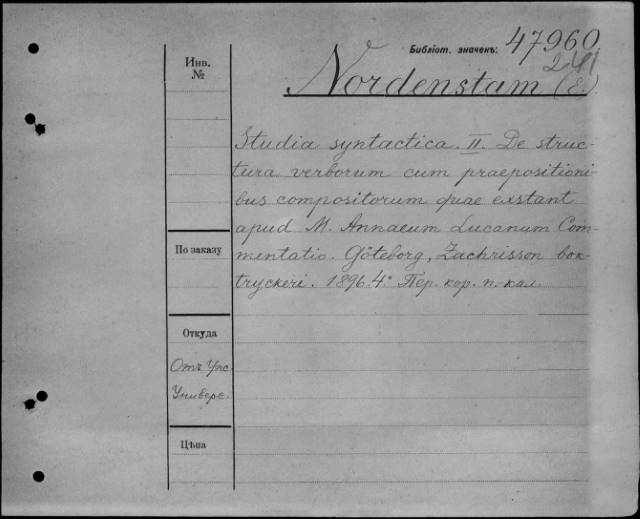 Библіот. значекъ: 47960
241
Инв.
№
Nordenstam (E.)
Studia syntactica. II. De struc-
tura verborum cum praepositioni-
bus compositorum quae exstant
apud M. Annaeum Lucanum Com-
mentatio. Göteborg, Zachrisson bok-
tryckeri. 1896. 4° Пер. кор. п.-кал.
По заказу
Откуда
Отъ Упс.
Универс.
Цѣна